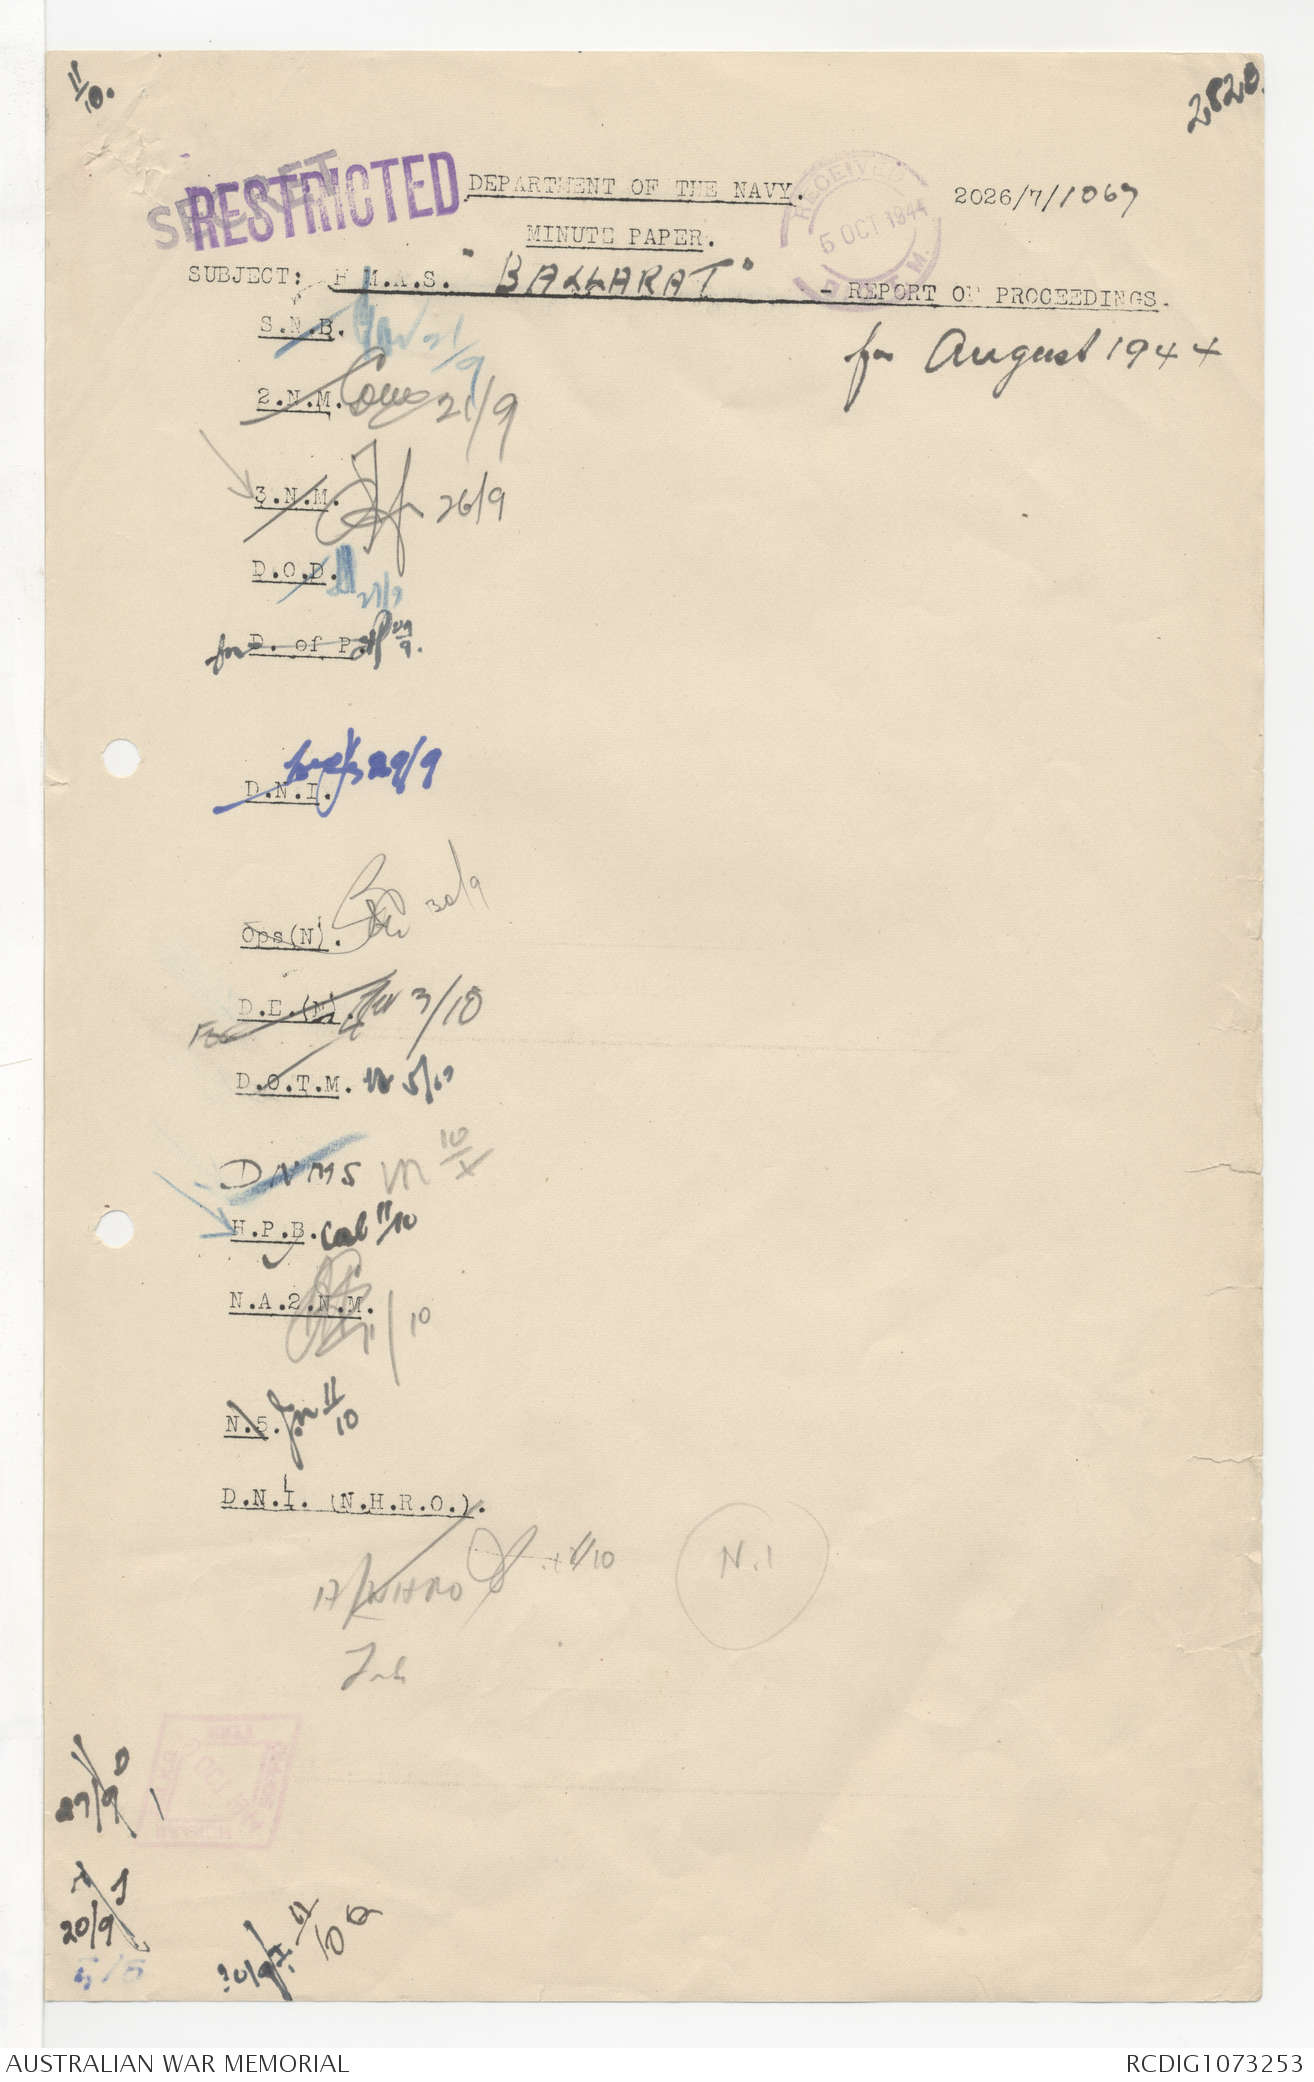 11/10.
2820.
SECRET
RESTRICTED
DEPARTMENT OF THE NAVY.
RECEIVED
5 OCT 1944
2026/7/1067
MINUTE PAPER.
SUBJECT: H.M.A.S. "BALLARAT" - REPORT OF PROCEEDINGS.
for August 1944
S.N.B. 21/9
2.N.M. 21/9
3.N.M. 26/9
D.O.D. 27/9
for D. of P. 29/9.
D.N.I. 29/9
Ops(N). 30/9
D.E.(N). 3/10
D.O.T.M. 5/10
DNMS 10/X
H.P.B. 11/10
N.A.2.N.M. 11/10
N.5. 11/10
D.N.I. (N.H.R.O.).
A/NHRO 11/10
N.1
27/9
20/9
30/9
11/10
AUSTRALIAN WAR MEMORIAL
RCDIG1073253